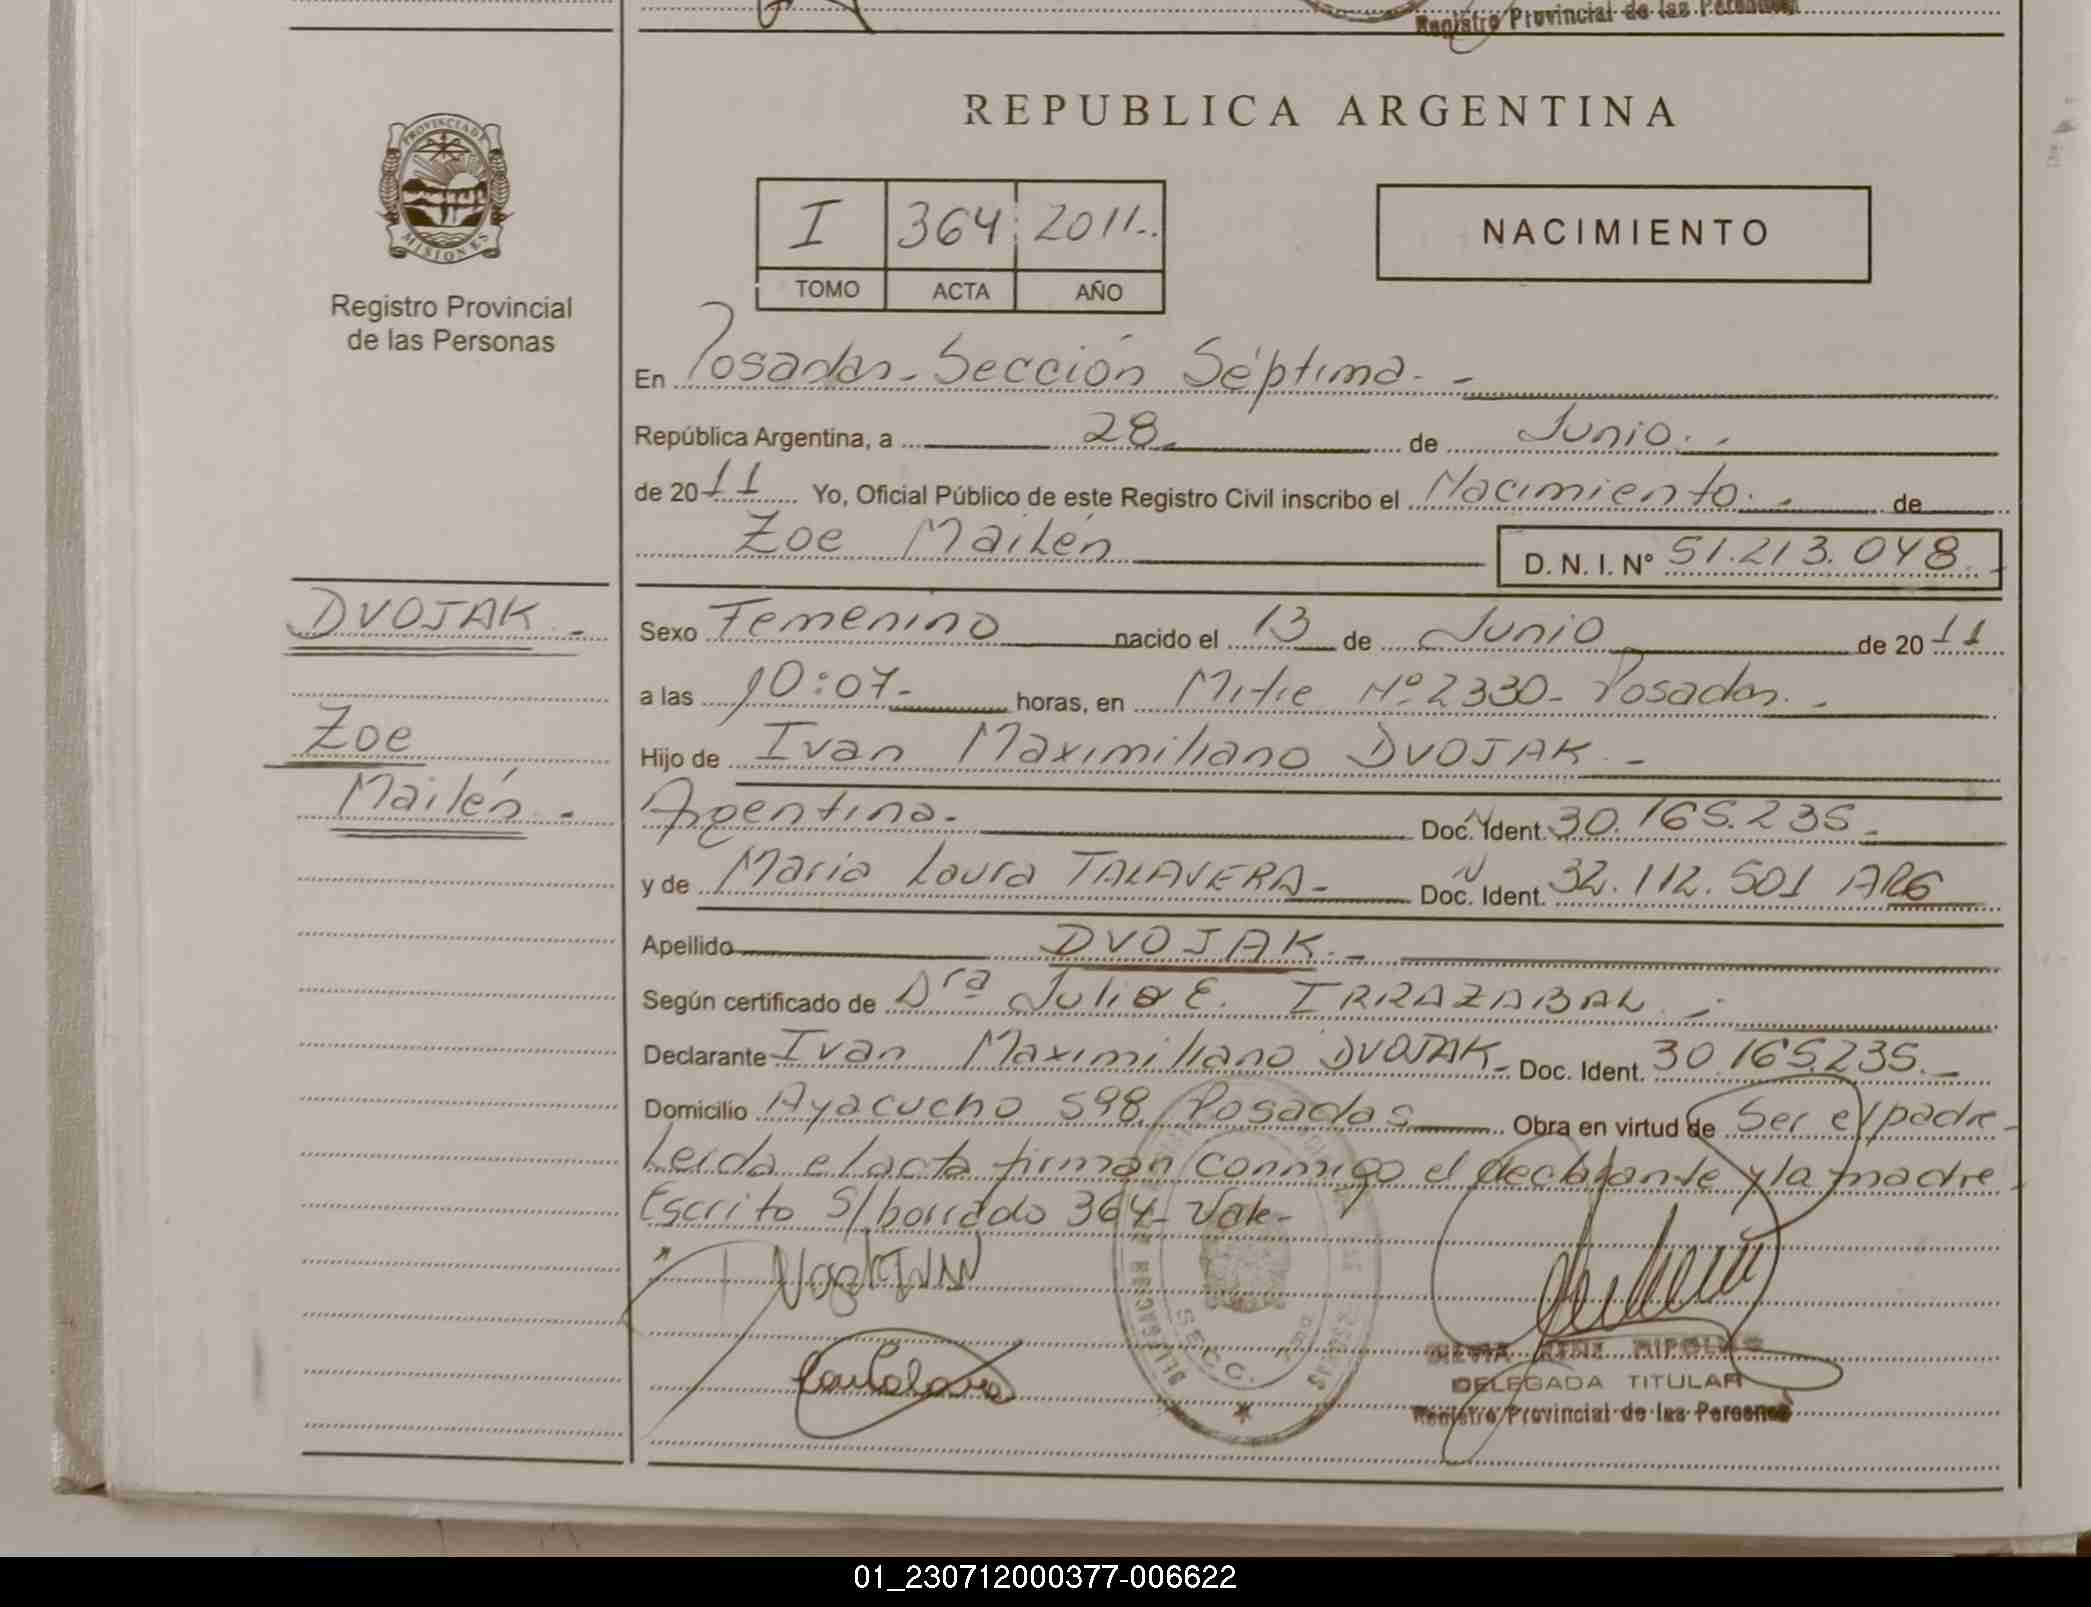 Registro Provincial de las Personas
REPUBLICA ARGENTINA
PROVINCIA DE
MISIONES
Registro Provincial
de las Personas
I 364 2011..
TOMO ACTA AÑO
NACIMIENTO
En Posadas - Sección Séptima. -
República Argentina, a 28 de Junio. -
de 2011 Yo, Oficial Público de este Registro Civil inscribo el Nacimiento. - de
Zoe Mailén
D. N. I. Nº 51.213.048. -
DVOJAK. -
Zoe
Mailén. -
Sexo Femenino nacido el 13 de Junio de 2011
a las 10:07- horas, en Mitre Nº 2330 - Posadas. -
Hijo de Ivan Maximiliano DVOJAK. -
Argentina. - Doc. Ident. N 30.165.235. -
y de Maria Laura TALAVERA - Doc. Ident. N 32.112.501 ARG
Apellido DVOJAK. -
Según certificado de Dra Julia E. IRRAZABAL. -
Declarante Ivan Maximiliano DVOJAK - Doc. Ident. 30.165.235. -
Domicilio Ayacucho 598 Posadas Obra en virtud de Ser el padre -
Leida el acta firman conmigo el declarante y la madre
Escrito S/borrado 364 - Vale -
SECC. 7ma
DELEGADA TITULAR
Registro Provincial de las Personas
01_230712000377-006622